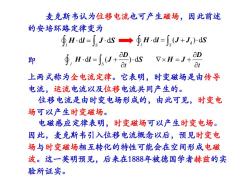 麦克斯韦认为位移电流也可产生磁场，因此前述
的安培环路定律变为
∮_l H·dl = ∫_S J·dS → ∮_l H·dl = ∫_S (J + J_d)·dS
即 ∮_l H·dl = ∫_S (J + ∂D/∂t)·dS ∇×H = J + ∂D/∂t
上两式称为全电流定律。它表明，时变磁场是由传导
电流，运流电流以及位移电流共同产生的。
位移电流是由时变电场形成的，由此可见，时变电
场可以产生时变磁场。
电磁感应定律表明，时变磁场可以产生时变电场。
因此，麦克斯韦引入位移电流概念以后，预见时变电
场与时变磁场相互转化的特性可能会在空间形成电磁
波。这一英明预见，后来在1888年被德国学者赫兹的实
验所证实。